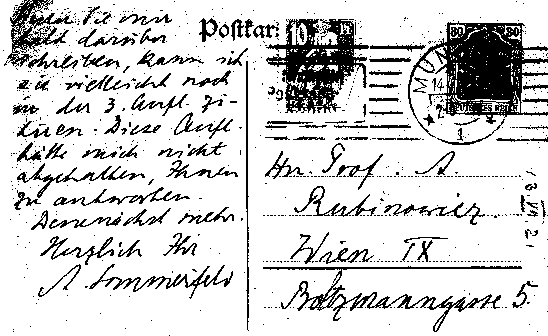 Wenn Sie mir
bald darüber
schreiben, kann ich
es vielleicht noch
in der 3. Aufl. zi-
tieren. Diese Aufl.
hätte mich nicht
abgehalten, Ihnen
zu antworten.
Demnächst mehr.
Herzlich Ihr
A Sommerfeld
Postkar
10
80 80
MÜN
14
DEUTSCHES REICH
1
Hn. Prof. A
Rubinowicz
Wien IX
Boltzmanngasse 5